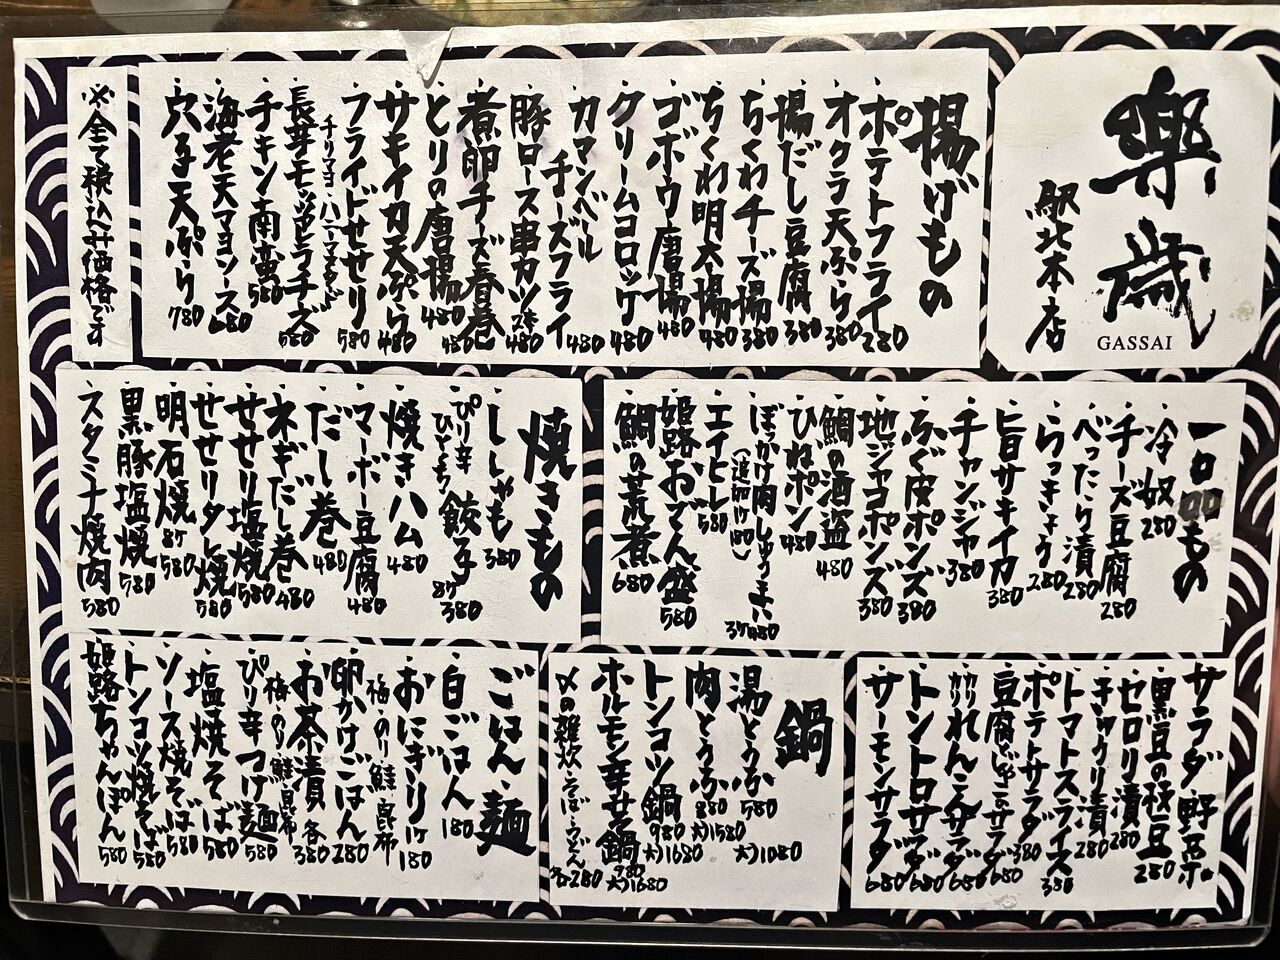 楽歳
駅北本店
GASSAI
揚げもの
ポテトフライ 280
オクラ天ぷら 380
揚だし豆腐 380
ちくわチーズ揚 380
ちくわ明太揚 480
ゴボウ唐揚 480
クリームコロッケ 480
カマンベールチーズフライ 480
豚ロース串カツ 2本 480
煮卵チーズ春巻 480
とりの唐揚 480
サキイカ天ぷら 480
フライドせせり 580
チリマヨ・ハニーマスタード
長芋モッツァレラチーズ 580
チキン南蛮 580
海老天マヨソース 680
穴子天ぷら 780
※全て税込み価格です
一品もの
冷奴 280
チーズ豆腐 280
べったり漬 280
らっきょう 280
旨サキイカ 380
チャンジャ 380
ふぐ皮ポンズ 380
地ジャコポンズ 380
鯛の酒盗 480
ひねポン 480
ぼっかけ肉しゅうまい 3ケ480
(追加1ケ180)
エイヒレ 580
姫路おでん盛 580
鯛の荒煮 680
焼きもの
ししゃも 380
ぴり辛ひとくち餃子 8ケ380
焼きハム 480
マーボー豆腐 480
だし巻 480
ネギだし巻 480
せせり塩焼 580
せせりタレ焼 580
明石焼 8ケ580
黒豚塩焼 580
スタミナ焼肉 580
サラダ・野菜
黒豆の枝豆 280
セロリ漬 280
きゅうり漬 280
トマトスライス 380
ポテトサラダ 380
豆腐とじゃこのサラダ 680
カリカリれんこんサラダ 680
トントロサラダ 680
サーモンサラダ 680
鍋
湯とうふ 580 大)1080
肉とうふ 880 大)1580
トンコツ鍋 980 大)1680
ホルモン辛せ鍋 980 大)1680
〆の雑炊・そば・うどん 各280
ごはん・麺
白ごはん 180
おにぎり 1ケ180
梅・のり・鮭・昆布
卵かけごはん 280
お茶漬 各380
梅・のり・鮭・昆布
ぴり辛つけ麺 580
塩焼そば 580
ソース焼そば 580
トンコツ焼そば 580
姫路ちゃんぽん 580